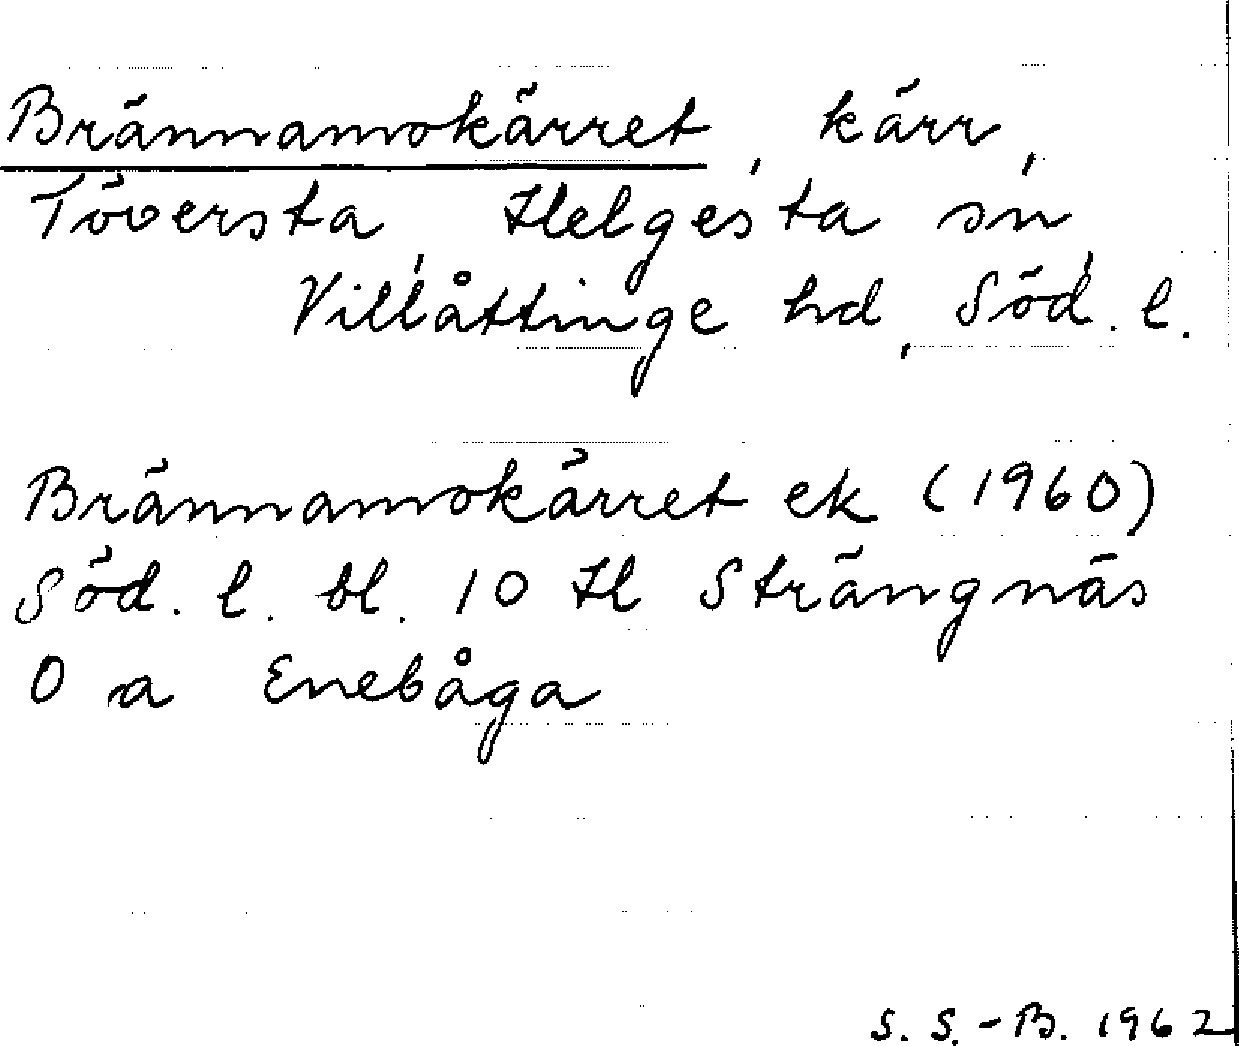 Brännamokärret, kärr,
Töversta, Helgesta sn,
Villåttinge hd, Söd. l.
Brännamokärret ek (1960)
Söd. l. bl. 10 H Strängnäs
O a Enebåga
S. S.-B. 1962